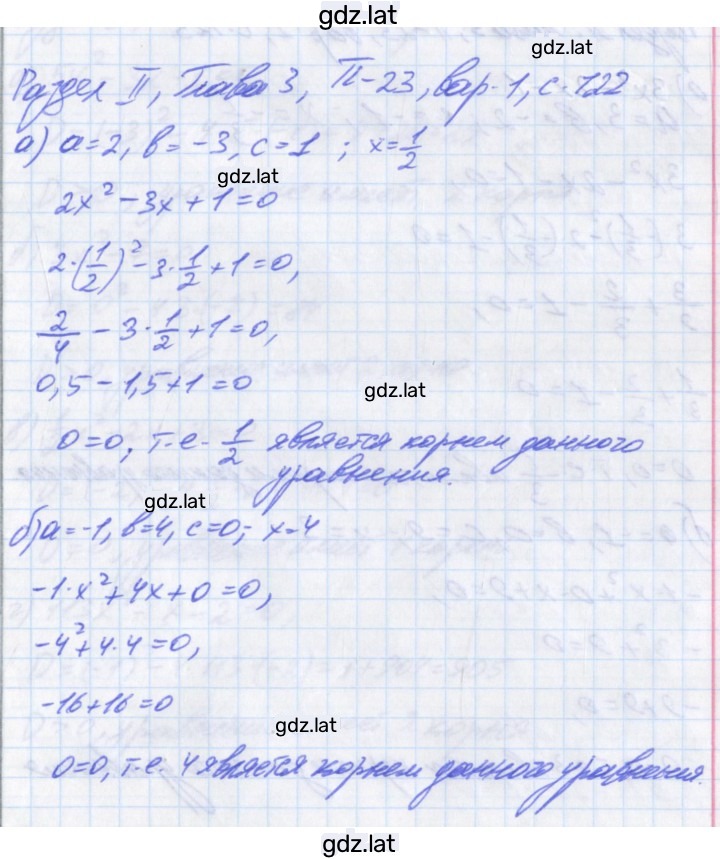 gdz.lat
gdz.lat
Раздел II, Глава 3, П-23, вар. 1, с. 122
а) a=2, b= -3, c=1 ; x=1/2
gdz.lat
2x² - 3x + 1 = 0
2·(1/2)² - 3·1/2 + 1 = 0,
2/4 - 3·1/2 + 1 = 0,
0,5 - 1,5 + 1 = 0
gdz.lat
0=0, т.е. 1/2 является корнем данного
уравнения.
gdz.lat
б) a=-1, b=4, c=0; x=4
-1·x² + 4x + 0 = 0,
-4² + 4·4 = 0,
-16+16=0
gdz.lat
0=0, т.е. 4 является корнем данного уравнения.
gdz.lat